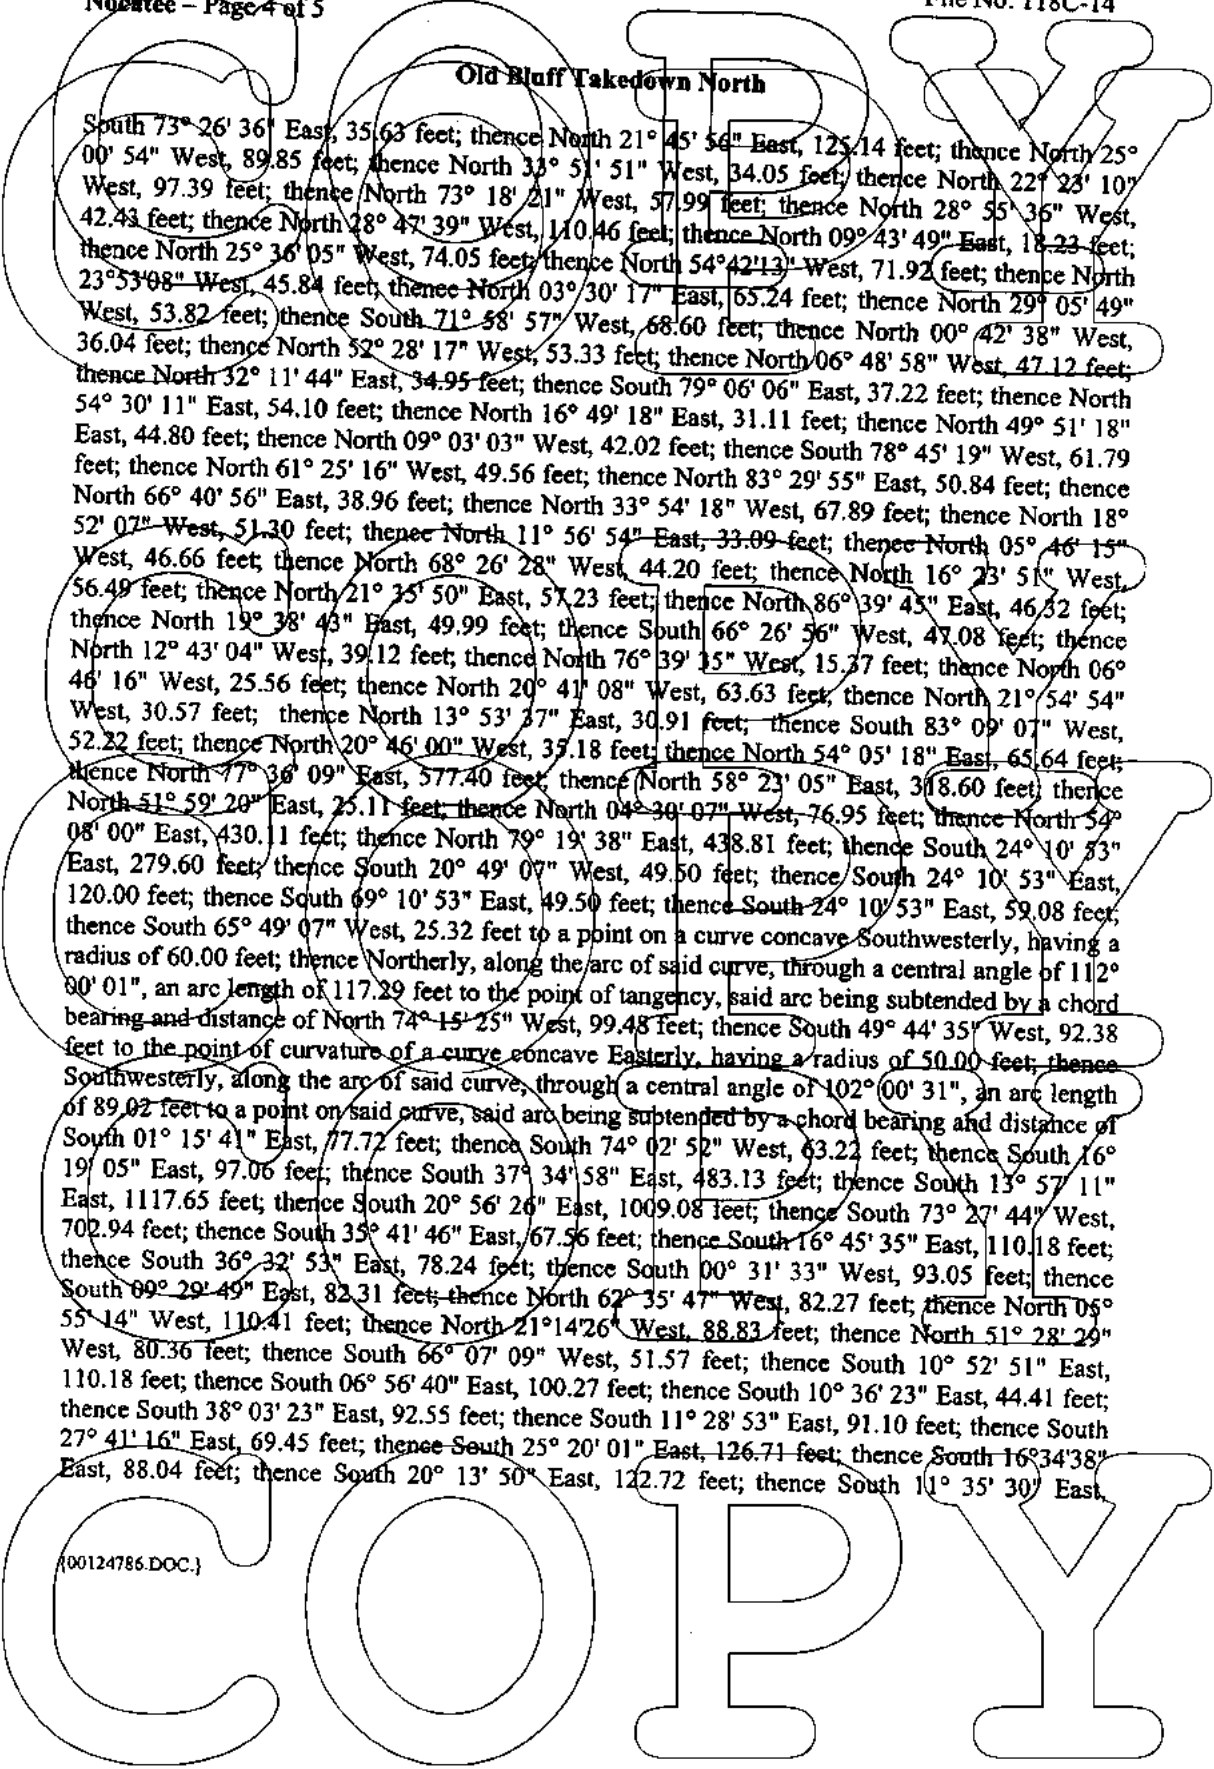 Nocatee – Page 4 of 5
File No. 118C-14
Old Bluff Takedown North
South 73° 26' 36" East, 35.63 feet; thence North 21° 45' 56" East, 125.14 feet; thence North 25°
00' 54" West, 89.85 feet; thence North 33° 51' 51" West, 34.05 feet; thence North 22° 23' 10"
West, 97.39 feet; thence North 73° 18' 21" West, 57.99 feet; thence North 28° 55' 36" West,
42.43 feet; thence North 28° 47' 39" West, 110.46 feet; thence North 09° 43' 49" East, 18.23 feet;
thence North 25° 36' 05" West, 74.05 feet; thence North 54°42'13" West, 71.92 feet; thence North
23°53'08" West, 45.84 feet; thence North 03° 30' 17" East, 65.24 feet; thence North 29° 05' 49"
West, 53.82 feet; thence South 71° 58' 57" West, 68.60 feet; thence North 00° 42' 38" West,
36.04 feet; thence North 52° 28' 17" West, 53.33 feet; thence North 06° 48' 58" West, 47.12 feet;
thence North 32° 11' 44" East, 34.95 feet; thence South 79° 06' 06" East, 37.22 feet; thence North
54° 30' 11" East, 54.10 feet; thence North 16° 49' 18" East, 31.11 feet; thence North 49° 51' 18"
East, 44.80 feet; thence North 09° 03' 03" West, 42.02 feet; thence South 78° 45' 19" West, 61.79
feet; thence North 61° 25' 16" West, 49.56 feet; thence North 83° 29' 55" East, 50.84 feet; thence
North 66° 40' 56" East, 38.96 feet; thence North 33° 54' 18" West, 67.89 feet; thence North 18°
52' 07" West, 51.30 feet; thence North 11° 56' 54" East, 33.09 feet; thence North 05° 46' 15"
West, 46.66 feet; thence North 68° 26' 28" West, 44.20 feet; thence North 16° 23' 51" West,
56.49 feet; thence North 21° 35' 50" East, 57.23 feet; thence North 86° 39' 45" East, 46.32 feet;
thence North 19° 38' 43" East, 49.99 feet; thence South 66° 26' 56" West, 47.08 feet; thence
North 12° 43' 04" West, 39.12 feet; thence North 76° 39' 35" West, 15.37 feet; thence North 06°
46' 16" West, 25.56 feet; thence North 20° 41' 08" West, 63.63 feet; thence North 21° 54' 54"
West, 30.57 feet; thence North 13° 53' 37" East, 30.91 feet; thence South 83° 09' 07" West,
52.22 feet; thence North 20° 46' 00" West, 35.18 feet; thence North 54° 05' 18" East, 65.64 feet;
thence North 77° 36' 09" East, 577.40 feet; thence North 58° 23' 05" East, 318.60 feet; thence
North 51° 59' 20" East, 25.11 feet; thence North 04° 30' 07" West, 76.95 feet; thence North 54°
08' 00" East, 430.11 feet; thence North 79° 19' 38" East, 438.81 feet; thence South 24° 10' 53"
East, 279.60 feet; thence South 20° 49' 07" West, 49.50 feet; thence South 24° 10' 53" East,
120.00 feet; thence South 69° 10' 53" East, 49.50 feet; thence South 24° 10' 53" East, 59.08 feet;
thence South 65° 49' 07" West, 25.32 feet to a point on a curve concave Southwesterly, having a
radius of 60.00 feet; thence Northerly, along the arc of said curve, through a central angle of 112°
00' 01", an arc length of 117.29 feet to the point of tangency, said arc being subtended by a chord
bearing and distance of North 74° 15' 25" West, 99.48 feet; thence South 49° 44' 35" West, 92.38
feet to the point of curvature of a curve concave Easterly, having a radius of 50.00 feet; thence
Southwesterly, along the arc of said curve, through a central angle of 102° 00' 31", an arc length
of 89.02 feet to a point on said curve, said arc being subtended by a chord bearing and distance of
South 01° 15' 41" East, 77.72 feet; thence South 74° 02' 52" West, 63.22 feet; thence South 16°
19' 05" East, 97.06 feet; thence South 37° 34' 58" East, 483.13 feet; thence South 13° 57' 11"
East, 1117.65 feet; thence South 20° 56' 26" East, 1009.08 feet; thence South 73° 27' 44" West,
702.94 feet; thence South 35° 41' 46" East, 67.56 feet; thence South 16° 45' 35" East, 110.18 feet;
thence South 36° 32' 53" East, 78.24 feet; thence South 00° 31' 33" West, 93.05 feet; thence
South 09° 29' 49" East, 82.31 feet; thence North 62° 35' 47" West, 82.27 feet; thence North 05°
55' 14" West, 110.41 feet; thence North 21°14'26" West, 88.83 feet; thence North 51° 28' 29"
West, 80.36 feet; thence South 66° 07' 09" West, 51.57 feet; thence South 10° 52' 51" East,
110.18 feet; thence South 06° 56' 40" East, 100.27 feet; thence South 10° 36' 23" East, 44.41 feet;
thence South 38° 03' 23" East, 92.55 feet; thence South 11° 28' 53" East, 91.10 feet; thence South
27° 41' 16" East, 69.45 feet; thence South 25° 20' 01" East, 126.71 feet; thence South 16°34'38"
East, 88.04 feet; thence South 20° 13' 50" East, 122.72 feet; thence South 11° 35' 30" East,
{00124786.DOC.}
COPY
COPY
COPY
COPY
COPY
COPY